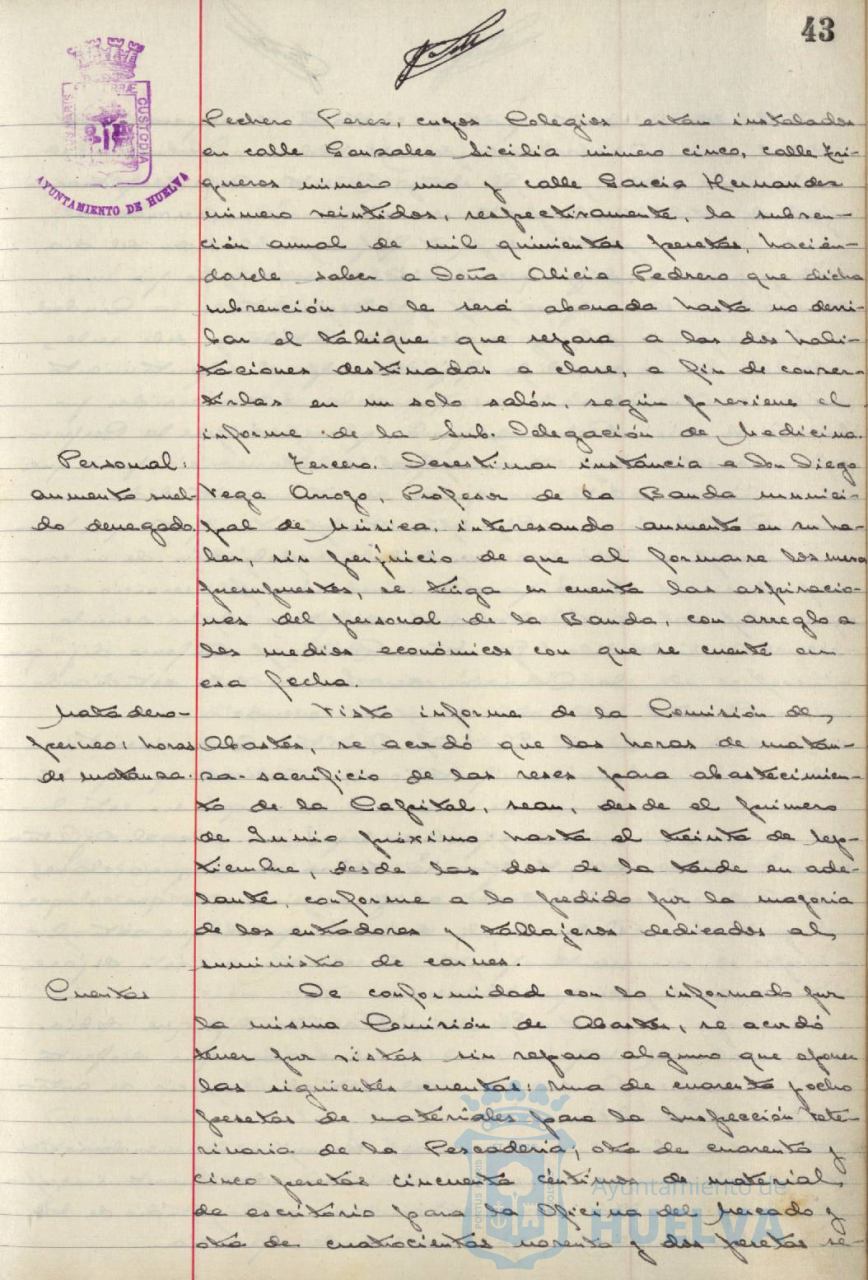 43
CUSTODIA
AYUNTAMIENTO DE HUELVA
Pedrero Perez, cuyos Colegios estan instalados
en calle Gonzalez Sicilia número cinco, calle Tri-
gueros número uno y calle Garcia Hernandez
número veintidos, respectivamente, la subven-
ción anual de mil quinientas pesetas, hacién-
dosele saber a Doña Alicia Pedrero que dicha
subvención no le será abonada hasta no derri-
bar el tabique que separa a las dos habi-
taciones destinadas a clase, a fin de conver-
tirlas en un solo salón, según previene el
informe de la Sub. Delegación de Medicina.
Personal:
aumento suel-
do denegado.
Tercero. Desestimar instancia a Don Diego
Vega Arroyo, Profesor de la Banda munici-
pal de Música, interesando aumento en su ha-
ber, sin perjuicio de que al formarse los nuevos
presupuestos, se tenga en cuenta las aspiracio-
nes del personal de la Banda, con arreglo a
los medios económicos con que se cuente en
esa fecha.
Matadero
horas
de matanza.
Visto informe de la Comisión de
Abastos, se acordó que las horas de matan-
za-sacrificio de las reses para abastecimien-
to de la Capital, sean, desde el primero
de Junio próximo hasta el treinta de sep-
tiembre, desde las dos de la tarde en ade-
lante, conforme a lo pedido por la mayoria
de los entradores y tablajeros dedicados al
suministro de carnes.
Cuentas
De conformidad con lo informado por
la misma Comisión de Abastos, se acordó
tener por vistas sin reparo alguno que oponer
las siguientes cuentas: una de cuarenta y ocho
pesetas de materiales para la Inspección Vete-
rinaria de la Pescaderia; otra de cuarenta y
cinco pesetas cincuenta céntimos de material
de escritório para la Oficina del Mercado y
otra de cuatrocientas noventa y dos pesetas se-
Ayuntamiento de
HUELVA